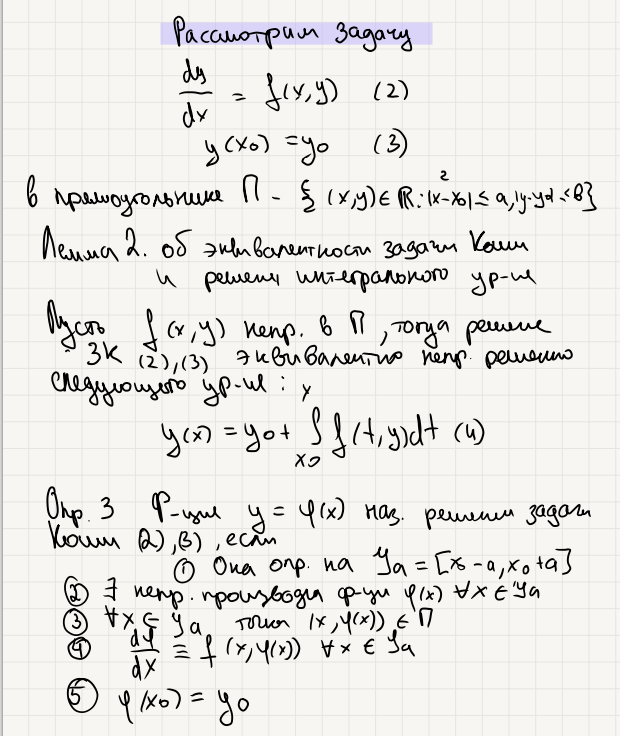 Рассмотрим задачу
dy/dx = f(x,y) (2)
y(x₀) = y₀ (3)
в прямоугольнике П - {(x,y) ∈ ℝ²: |x-x₀| ≤ a, |y-y₀| ≤ b}
Лемма 2. об эквивалентности задачи Коши
и решени интегрального ур-ие
Пусть f(x,y) непр. в П, тогда решение
ЗК (2),(3) эквивалентно непр. решению
следующего ур-ие:
y(x) = y₀ + ∫ₓ₀ˣ f(t,y)dt (4)
Опр. 3 Ф-ция y = φ(x) наз. решени задачи
Коши (2),(3), если
① Она опр. на Ya = [x₀-a, x₀+a]
② ∃ непр. производн ф-ции φ(x) ∀x ∈ Ya
③ ∀x ∈ Ya точка (x, φ(x)) ∈ П
④ dφ/dx ≡ f(x, φ(x)) ∀x ∈ Ya
⑤ φ(x₀) = y₀